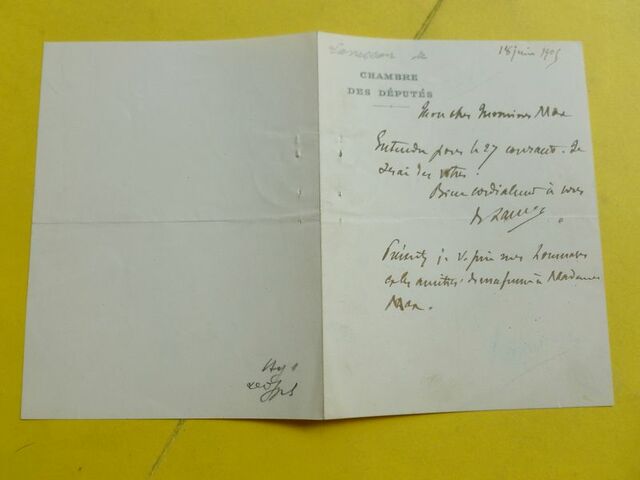 Lanessan de
18 juin 1905
CHAMBRE
DES DÉPUTÉS
Mon cher Monsieur Max
Entendu pour le 27 courant. Je
serai des vôtres.
Bien cordialement à vous
Présentez je v. prie mes hommages
et les amitiés de ma femme à Madame
Max.